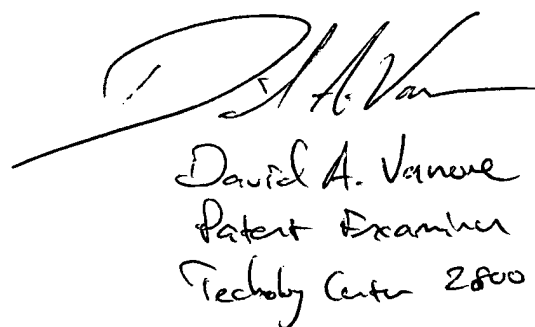 David A. Van
David A. Vanore
Patent Examiner
Technology Center 2800